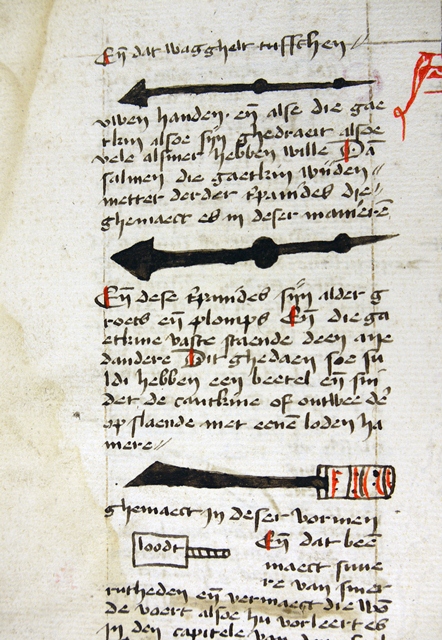 Eñ dat wagghelt tusschen
uwen handen eñ alse die gae
tkin alsoe sijn ghedraeit alsoe
vele alsmer hebben wille Dā
salmen die gaetkin wijden
metter derder tpraindes die
ghemaect es in deser maniere
Eñ dese tpraindes sijn alder g
roets eñ plomps Eñ die ga
etkine vaste staende deen ane
dandere Dit ghedaen soe su
ldi hebben een beetel eñ sni
det de cantkine of ontwee de
op slaende met eenē loden ha
mere
ghemaect in deser vormen
loodt
Eñ dat been
maect suve
re van siner
rutheden eñ vermaect die wō
de voert alsoe hu verleert es
in den capitele van